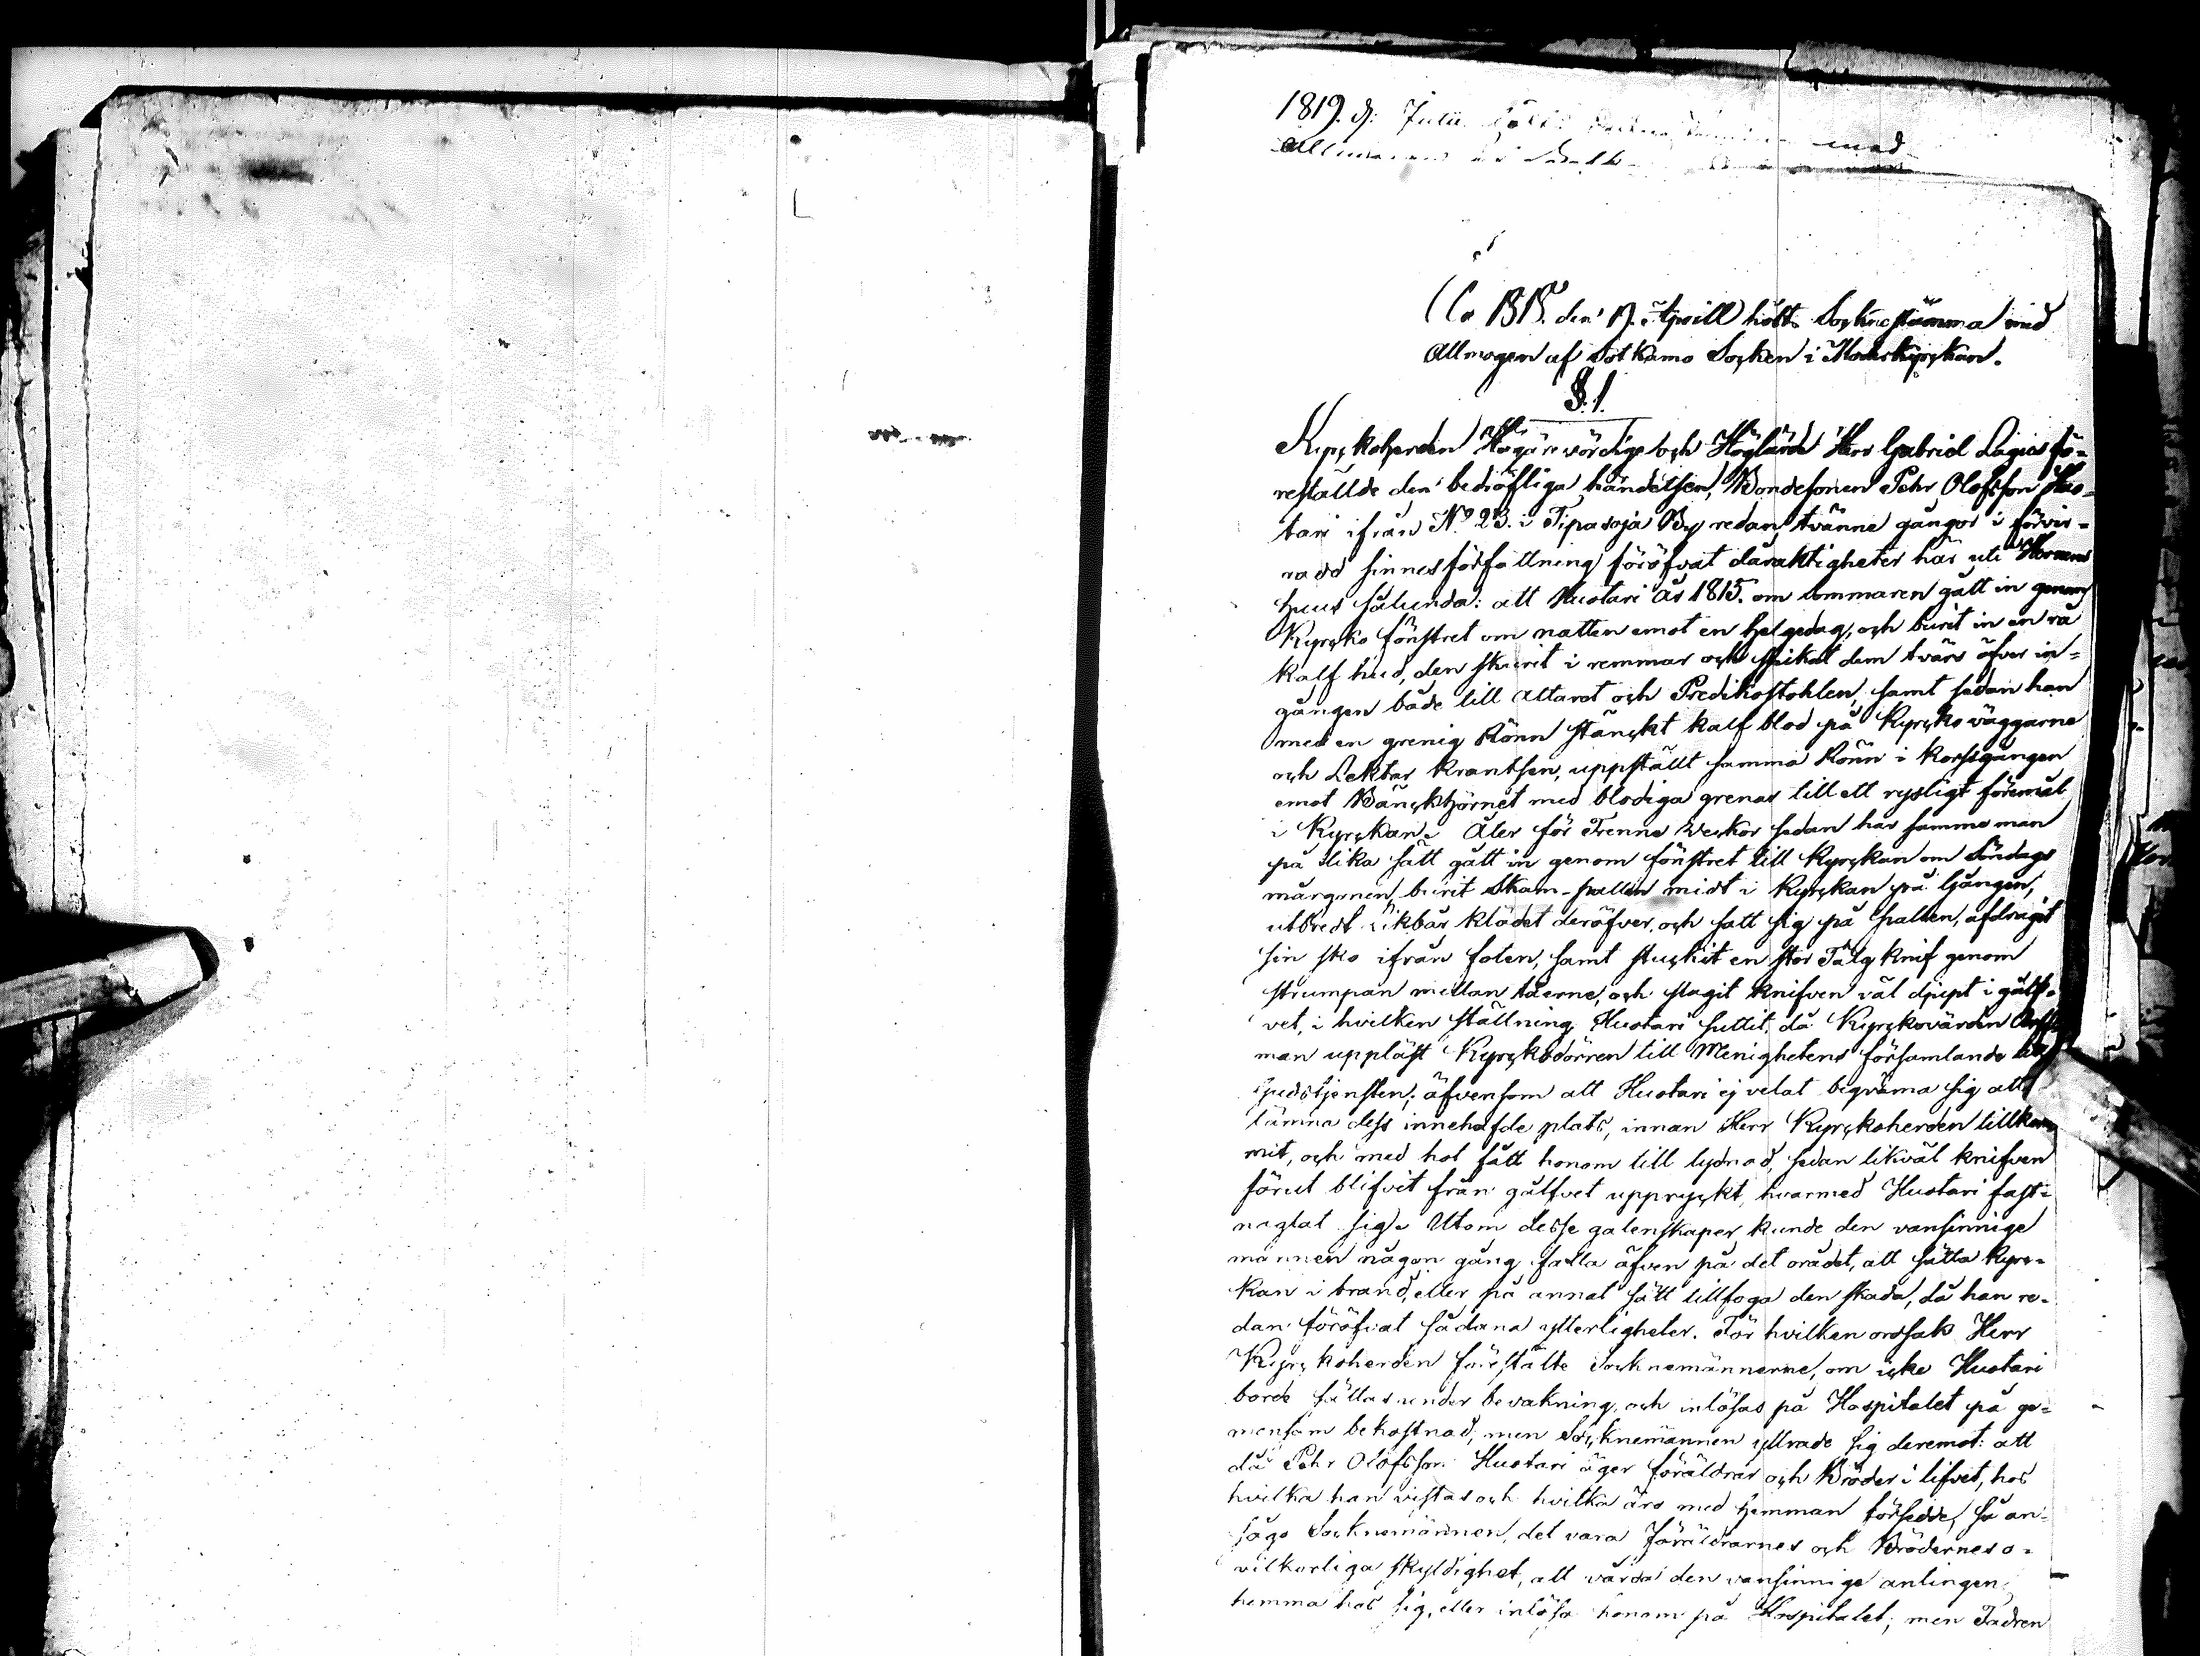 1819. d. Julii med
År 1818. den 19. Aprill hölts Sockne stämma med
Allmogen af Sotkamo Socken i Moderkyrckan.
§. 1.
Kyrckoherden Högärevördige och Höglärde Herr Gabriel Lagus fö-
reställde den bedröfliga händelsen, Bondesonen Pehr Olofsson Huo-
tari ifrån No 23. i Tipasoja By redan tvänne gångor i förvir-
radd sinnesförfattning föröfvat dåraktigheter här uti Herrans
Huus sålunda: att Huotari år 1815. om sommaren gått in genom
Kyrcko fönstret om natten emot en Helgedag, och burit in en rå
kalf hud, den skurit i remmar och spikat dem tvärs öfver in-
gången både till Altaret och Predikostohlen, samt sedan han
med en grenig Rönn stänckt kalf blod på Kyrcko väggarne
och Lektar krantsen, uppställt samma Rönn i korssgången
emot Bänckhörnet med blodiga grenar till ett rysligt föremål
i Kyrckan. Åter för Trenne Veckor sedan har samma man
på lika sätt gått in genom fönstret till Kyrckan om Söndags
mårgonen, burit Skam-pallen midt i Kyrckan på Gången,
utbredt Likbår klädet deröfver, och satt sig på pallen, afdragit
sin sko ifrån foten, samt stuckit en stor Tälg knif genom
strumpan mellan tåerne, och slagit knifven väl djupt i gålf-
vet, i hvilken ställning Huotari suttit, då Kyrckovärden
man uppläst Kyrckodörren till Menighetens församlande till
Gudstjensten; äfvensom att Huotari ej velat beqväma sig att
lämna dess innehafde plats, innan Herr Kyrckoherden tillkom-
mit, och med hot fått honom till lydnad, sedan likväl knifven
förut blifvit från gålfvet uppryckt, hvarmed Huotari fast-
naglat sig. Utom desse galenskaper kunde den vansinnige
mannen någon gång falla äfven på det orådet, att sätta Kyrc-
kan i brand, eller på annat sätt tillfoga den skada, då han re-
dan föröfvat sådana ytterligheter. För hvilken orsak Herr
Kyrckoherden föreställte Socknemännerne, om icke Huotari
borde sättas under bevakning, och inlösas på Hospitalet på ge-
mensam bekostnad; men Socknemännen yttrade sig deremot: att
då Pehr Olofsson Huotari äger föräldrar och Bröder i lifvet, hos
hvilka han vistas och hvilka äro med Hemman försedde, så an-
sågo Socknemännen, det vara Föräldrarnes och Brödernes o-
vilkorliga skyldighet, att vårda den vansinnige antingen
hemma hos sig, eller inlösa honom på Hospitalet; men Fadren